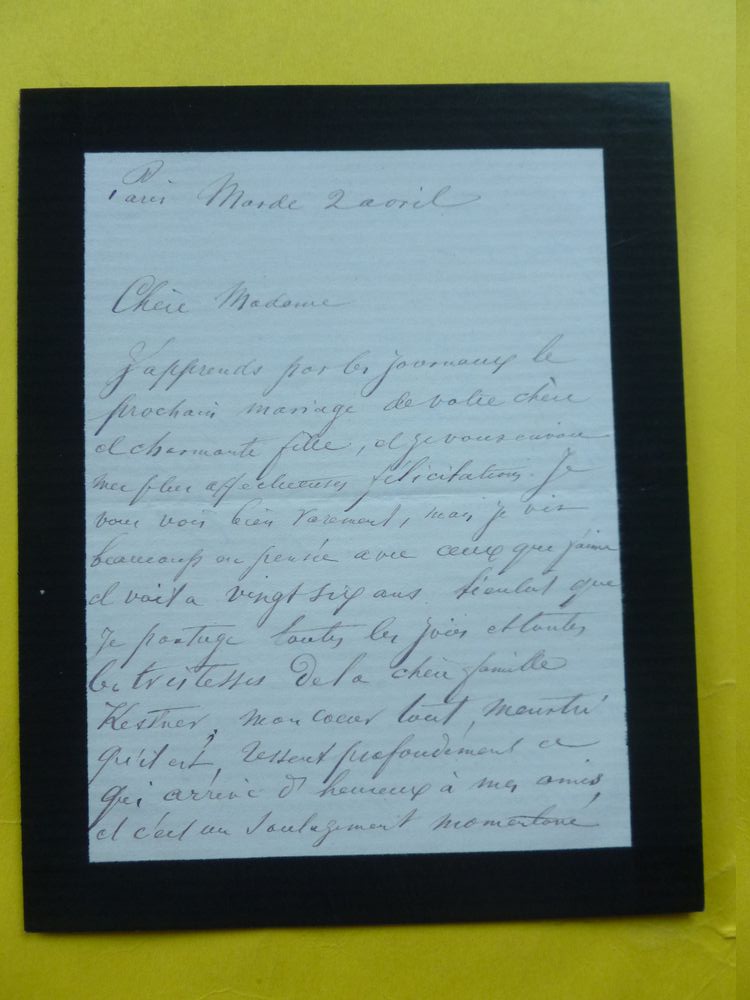 Paris Marde 2 avril
Chère Madame
J'apprends par les journaux le
prochain mariage de votre chère
et charmante fille, et je vous envoie
mes plus affectueuses félicitations. Je
vous vois bien rarement, mais je vis
beaucoup en pensée avec ceux que j'aime
et voilà vingt six ans bientôt que
je partage toutes les joies et toutes
les tristesses de la chère famille
Kestner, mon coeur tout meurtri
qu'il est, ressent profondément ce
qui arrive d'heureux à mes amis,
et c'est un soulagement momentané